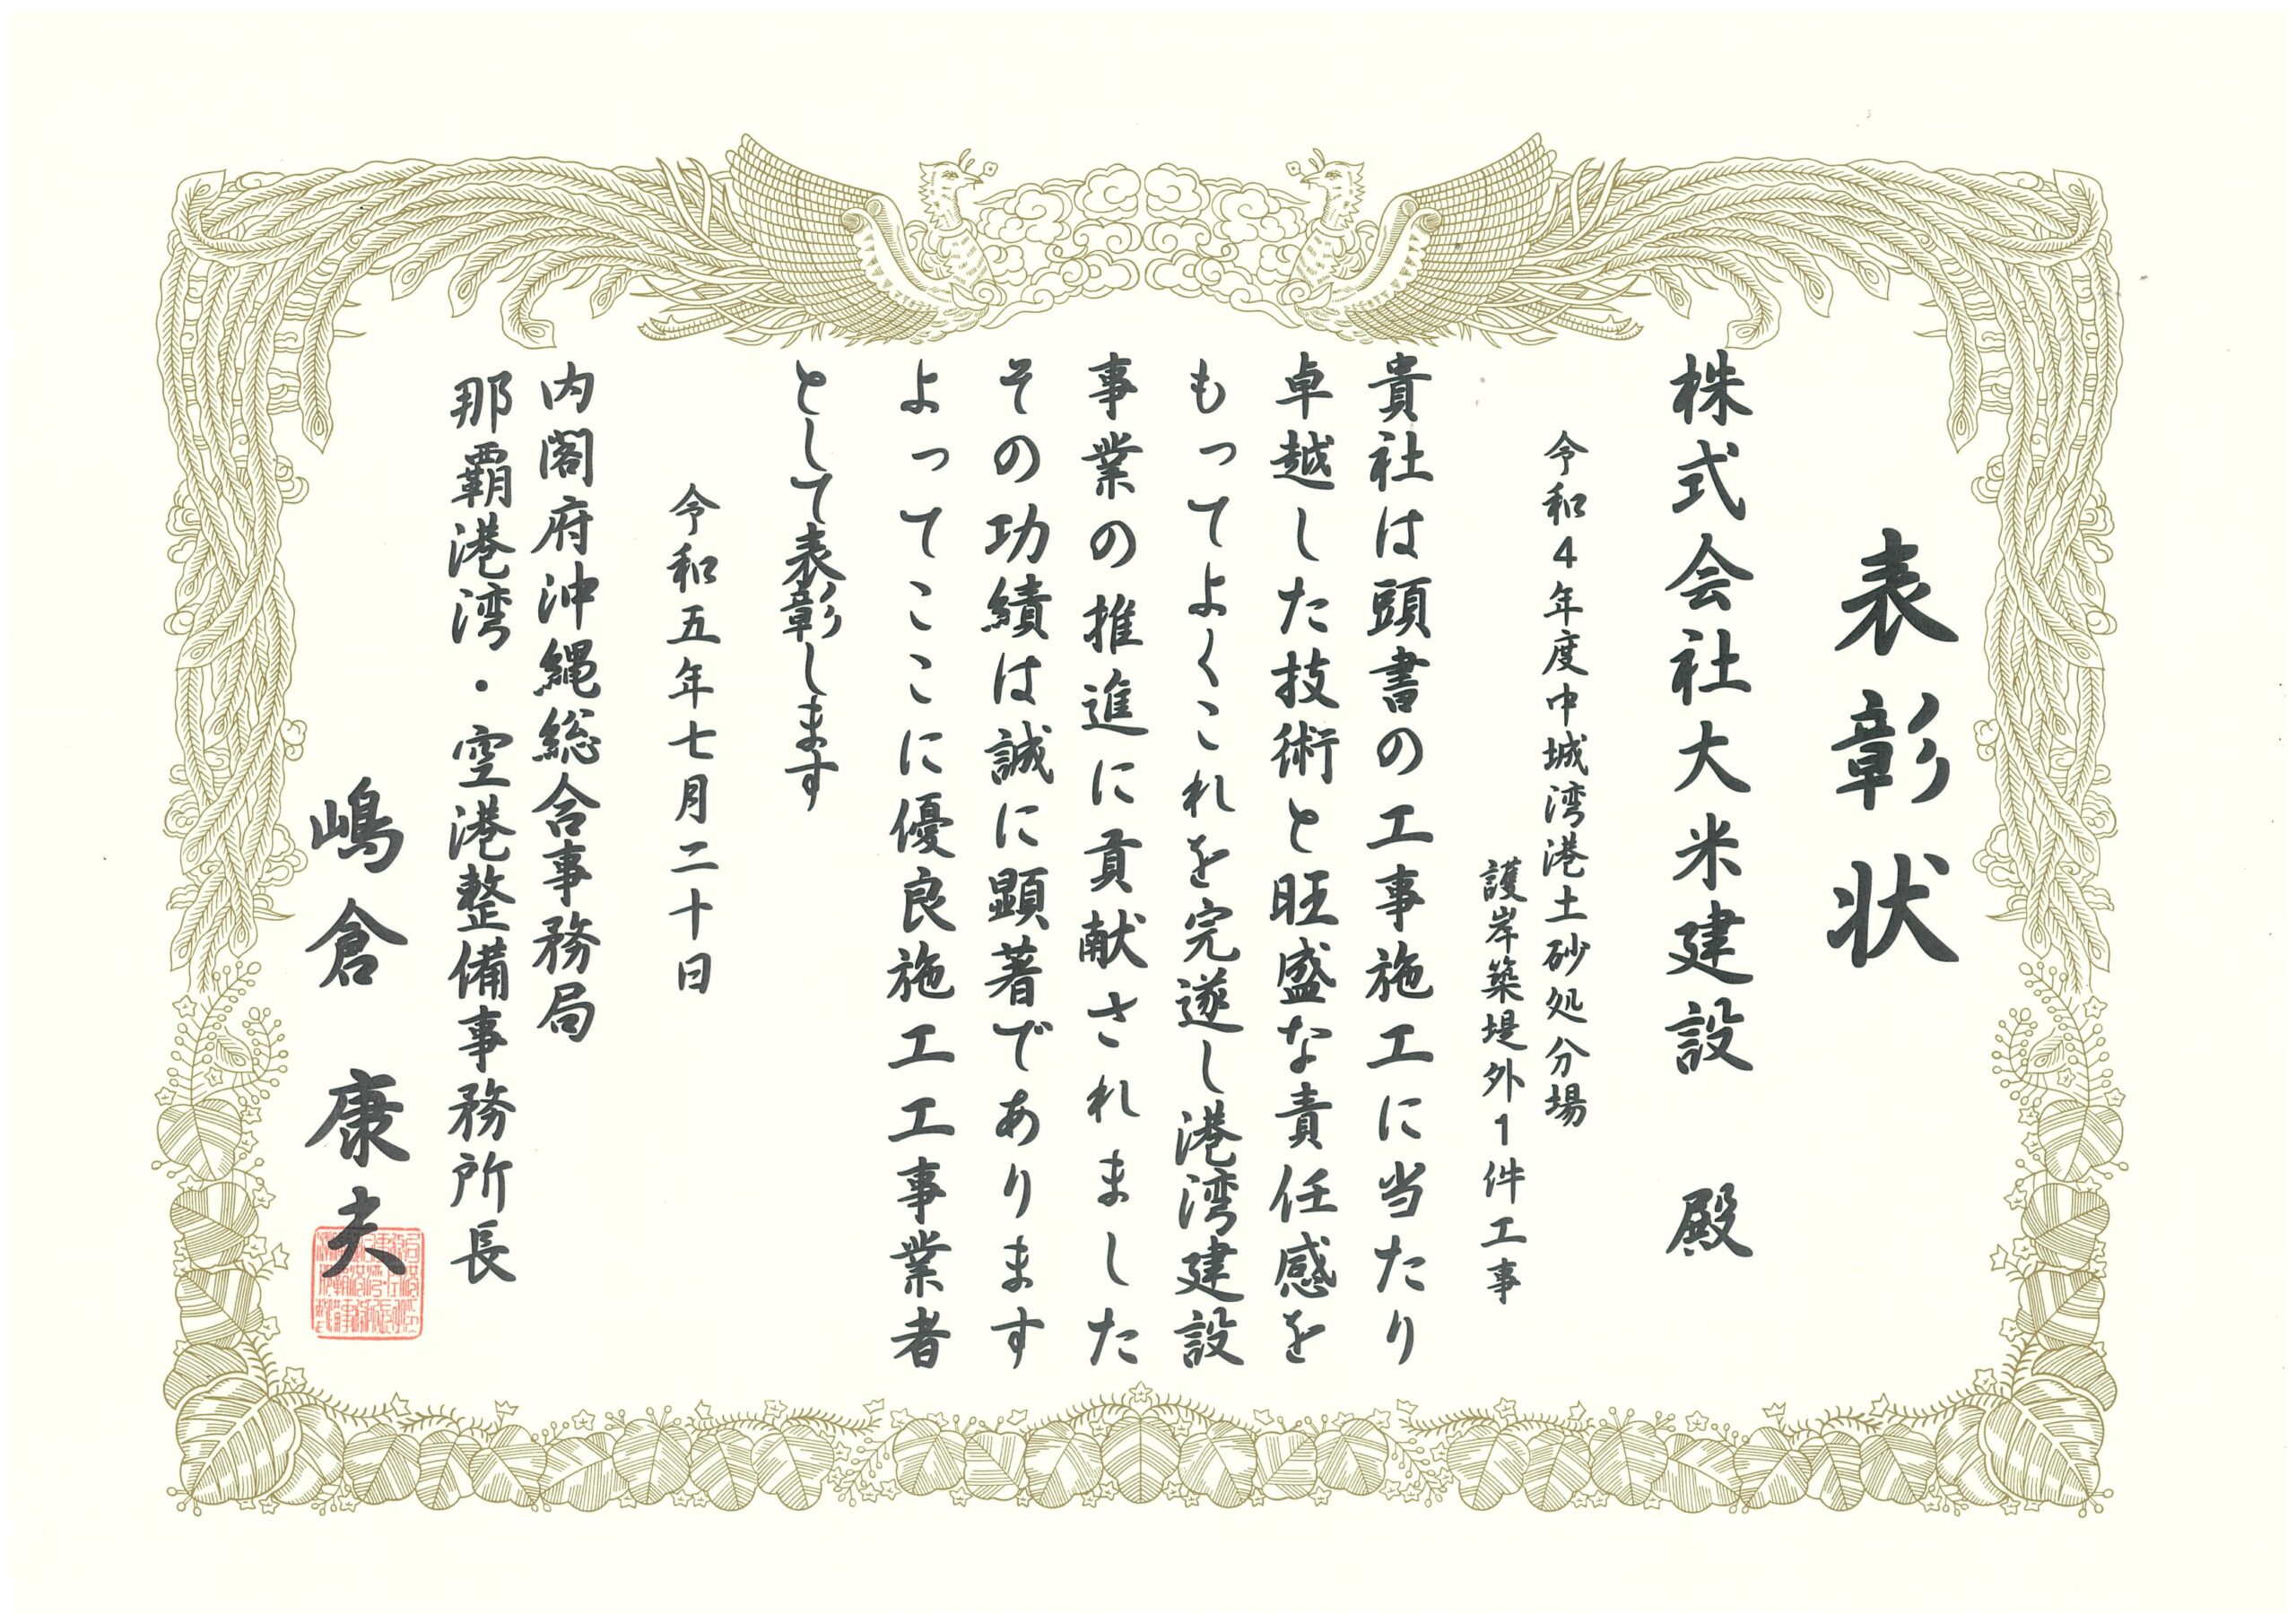 表彰状
株式会社大米建設 殿
令和4年度中城湾港土砂処分場
護岸築堤外1件工事
貴社は頭書の工事施工に当たり
卓越した技術と旺盛な責任感を
もってよくこれを完遂し港湾建設
事業の推進に貢献されました
その功績は誠に顕著であります
よってここに優良施工工事業者
として表彰します
令和五年七月二十日
内閣府沖縄総合事務局
那覇港湾・空港整備事務所長
嶋倉 康夫